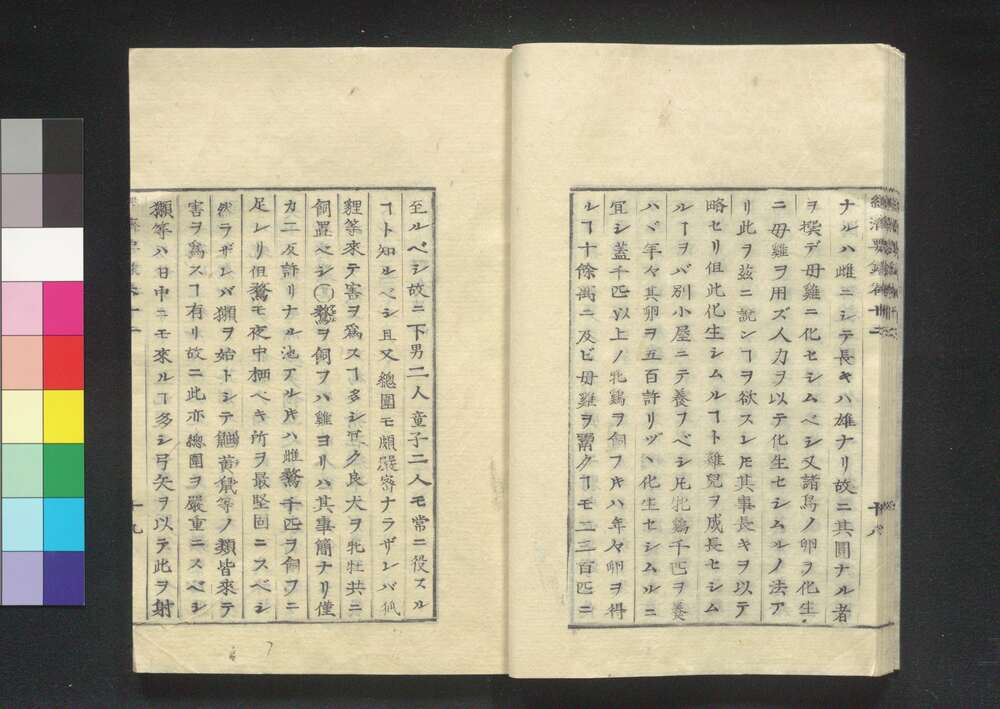 經濟要錄卷十二
ナルハ雌ニシテ長キハ雄ナリ故ニ其圓ナル者
ヲ撰デ母雞ニ化セシムベシ又諸鳥ノ卵ヲ化生
ニ母雞ヲ用ズ人力ヲ以テ化生セシムルノ法ア
リ此ヲ茲ニ說ンヿヲ欲スレㇳモ其事長キヲ以テ
略セリ但此化生シムルヿト雞兒ヲ成長セシム
ルヿヲバ別小屋ニテ養フベシ凡牝鷄千匹ヲ養
ハバ年々其卵ヲ五百許リヅヽ化生セシムルニ
宜シ蓋千匹以上ノ牝鷄ヲ飼フ片ハ年々卵ヲ得
ルヿ十餘萬ニ及ビ母雞ヲ鬻グヿモ二三百匹ニ
十八
至ルベシ故ニ下男二人童子二人モ常ニ役スル
ヿト知ルベシ且又總圍モ頗嚴密ナラザレバ狐
貍等來テ害ヲ爲スヿ多シ宜ク良犬ヲ牝牡共ニ
飼置ベシ○鶩ヲ飼フハ雞ヨリハ其事簡ナリ僅
カ二反許リナル池アル片ハ雌鶩千匹ヲ飼フニ
足レリ但鶩モ夜中栖ベキ所ヲ最堅固ニスベシ
然ラザレバ獺ヲ始トシテ鼬黃鼠等ノ類皆來テ
害ヲ爲スヿ有リ故ニ此亦總圍ヲ嚴重ニスベシ
獺等ハ日中ニモ來ルヿ多シ弓矢ヲ以テ此ヲ射
十九